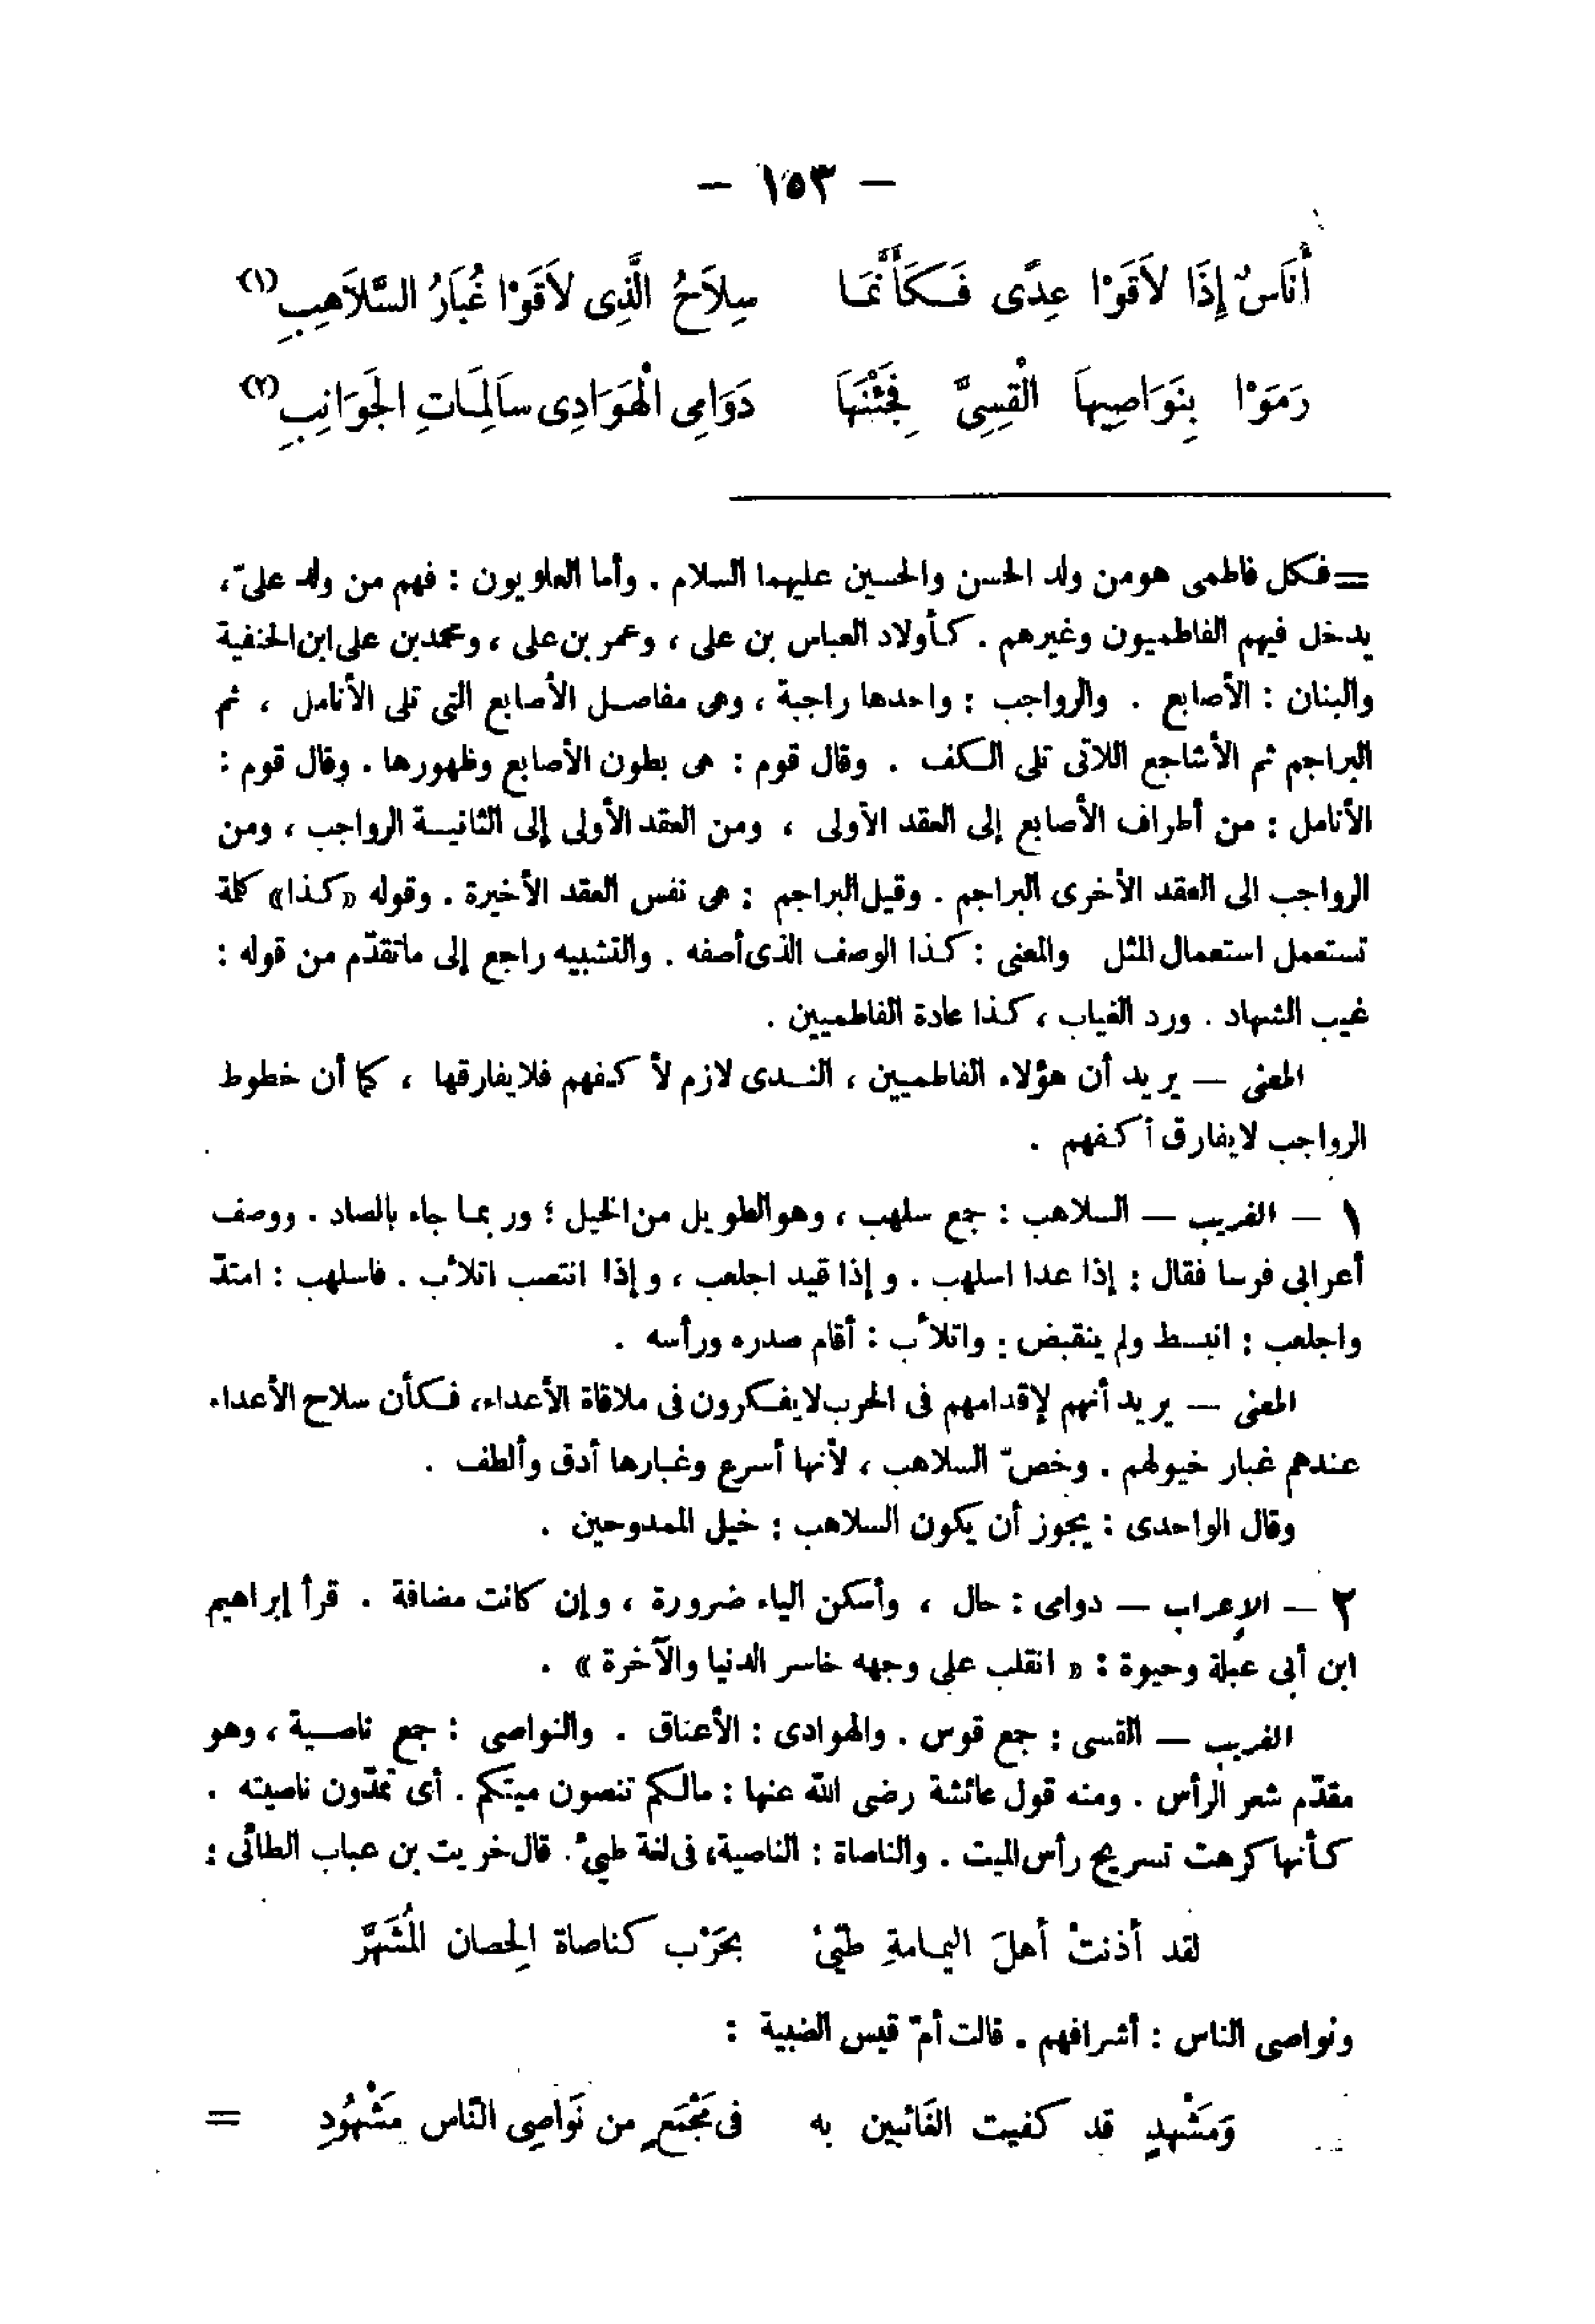 — ١٥٣ —
أُنَاسٌ إِذَا لَاقَوْا عِدًى فَكَأَنَّمَا سِلَاحُ الَّذِى لَاقَوْا غُبَارُ السَّلَاهِبِ (١)
رَمَوْا بِنَوَاصِيهَا الْقِسِىَّ فَجِئْنَهَا دَوَامِى الْهَوَادِى سَالِمَاتِ الجَوَانِبِ (٢)
= فكل فاطمى هو من ولد الحسن والحسين عليهما السلام . وأما العلويون : فهم من ولد علىّ ،
يدخل فيهم الفاطميون وغيرهم . كأولاد العباس بن على ، وعمر بن على ، ومحمد بن على ابن الحنفية
والبنان : الأصابع . والرواجب : واحدها راجبة ، وهى مفاصل الأصابع التى تلى الأنامل ، ثم
البراجم ثم الأشاجع اللاتى تلى الكف . وقال قوم : هى بطون الأصابع وظهورها . وقال قوم :
الأنامل : من أطراف الأصابع إلى العقد الأولى ، ومن العقد الأولى إلى الثانية الرواجب ، ومن
الرواجب الى العقد الأخرى البراجم . وقيل البراجم : هى نفس العقد الأخيرة . وقوله «كذا» كلمة
تستعمل استعمال المثل والمعنى : كذا الوصف الذى أصفه . والتشبيه راجع إلى ماتقدّم من قوله :
غيب الشهاد . ورد الغياب ، كذا عادة الفاطميين .
المعنى — يريد أن هؤلاء الفاطميين ، الندى لازم لأكفهم فلا يفارقها ، كما أن خطوط
الرواجب لا يفارق أكفهم .
١ — الغريب — السلاهب : جمع سلهب ، وهو الطويل من الخيل ؛ وربما جاء بالصاد . ووصف
أعرابى فرسا فقال : إذا عدا اسلهب . وإذا قيد اجلعب ، وإذا انتصب اتلأب . فاسلهب : امتدّ
واجلعب : انبسط ولم ينقبض : واتلأب : أقام صدره ورأسه .
المعنى — يريد أنهم لإقدامهم فى الحرب لا يفكرون فى ملاقاة الأعداء، فكأن سلاح الأعداء
عندهم غبار خيولهم . وخصّ السلاهب ، لأنها أسرع وغبارها أدق وألطف .
وقال الواحدى : يجوز أن يكون السلاهب : خيل الممدوحين .
٢ — الإعراب — دوامى : حال ، وأسكن الياء ضرورة ، وإن كانت مضافة . قرأ إبراهيم
ابن أبى عبلة وحيوة : « انقلب على وجهه خاسر الدنيا والآخرة » .
الغريب — القسى : جمع قوس . والهوادى : الأعناق . والنواصى : جمع ناصية ، وهو
مقدّم شعر الرأس . ومنه قول عائشة رضى الله عنها : مالكم تنصون ميتكم . أى تمدّون ناصيته .
كأنها كرهت تسريح رأس الميت . والناصاة : الناصية، فى لغة طيئ . قال خريت بن عباب الطائى :
لقد أذنتْ أهلَ اليمامةِ طيّئ بحَرْب كناصاة الحِصان المُشَهَّر
ونواصى الناس : أشرافهم . قالت أمّ قيس الضبية :
وَمَشْهدٍ قد كفيت الغَائبين به فى مَجْمَعٍ من نَوَاصِى النّاس مَشْهُودِ =